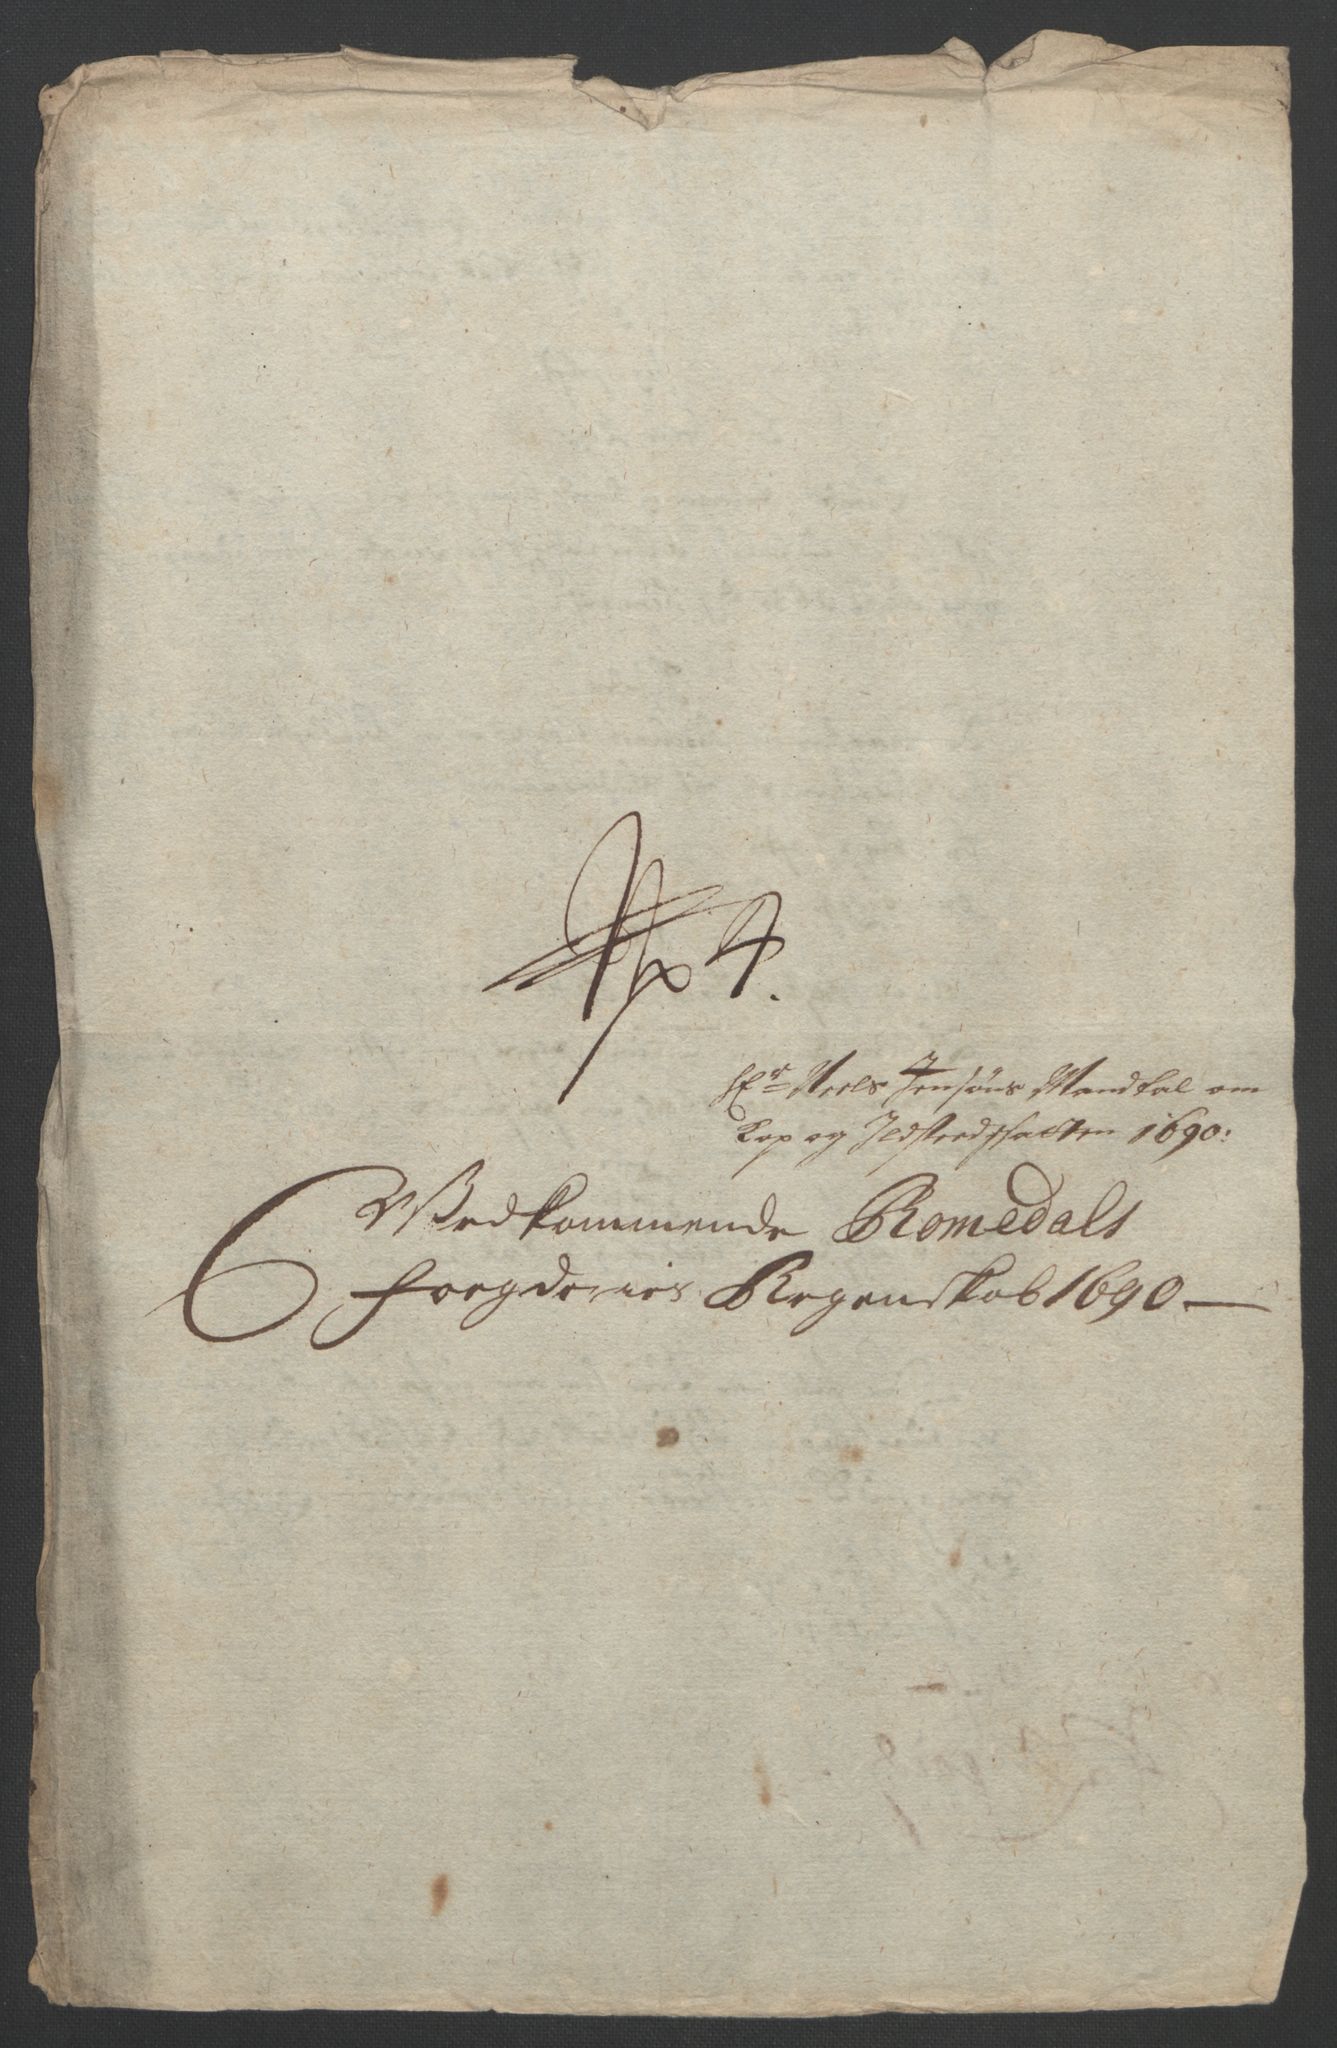 No 4.
Hr Neels Jensøns Mandtal om
Kop og Ildstedschatten 1690:
Vedkommende Romsdals
Foegderies Regenskab 1690